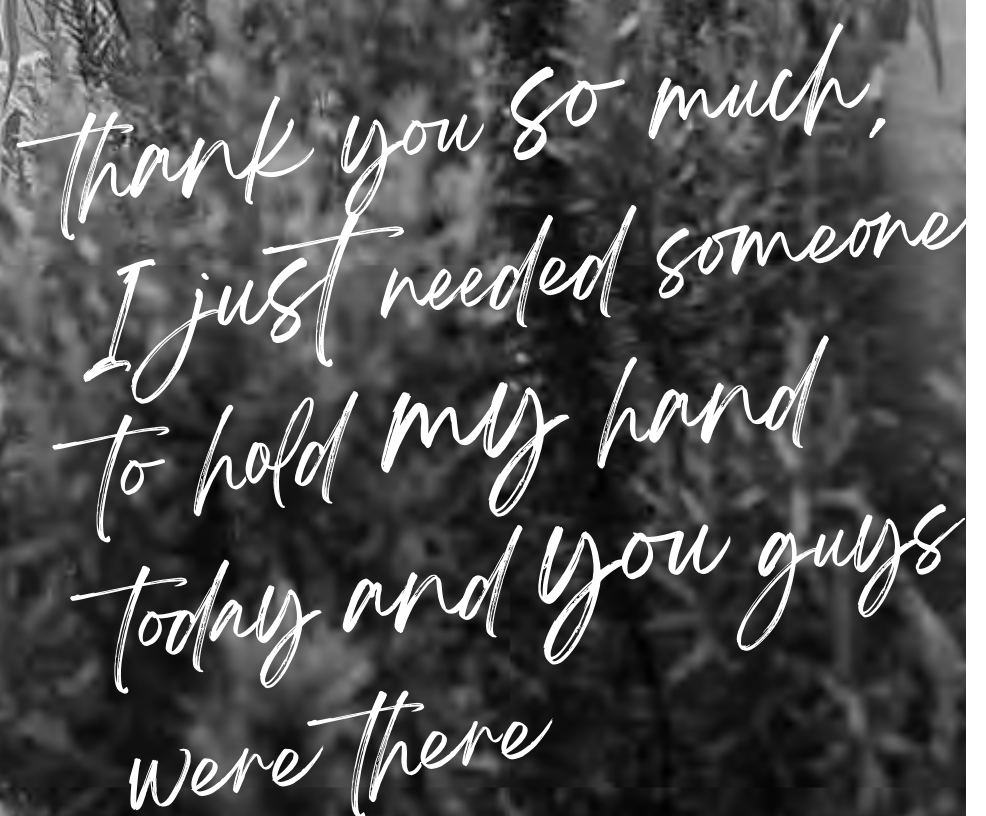 thank you so much,
I just needed someone
to hold my hand
today and you guys
were there